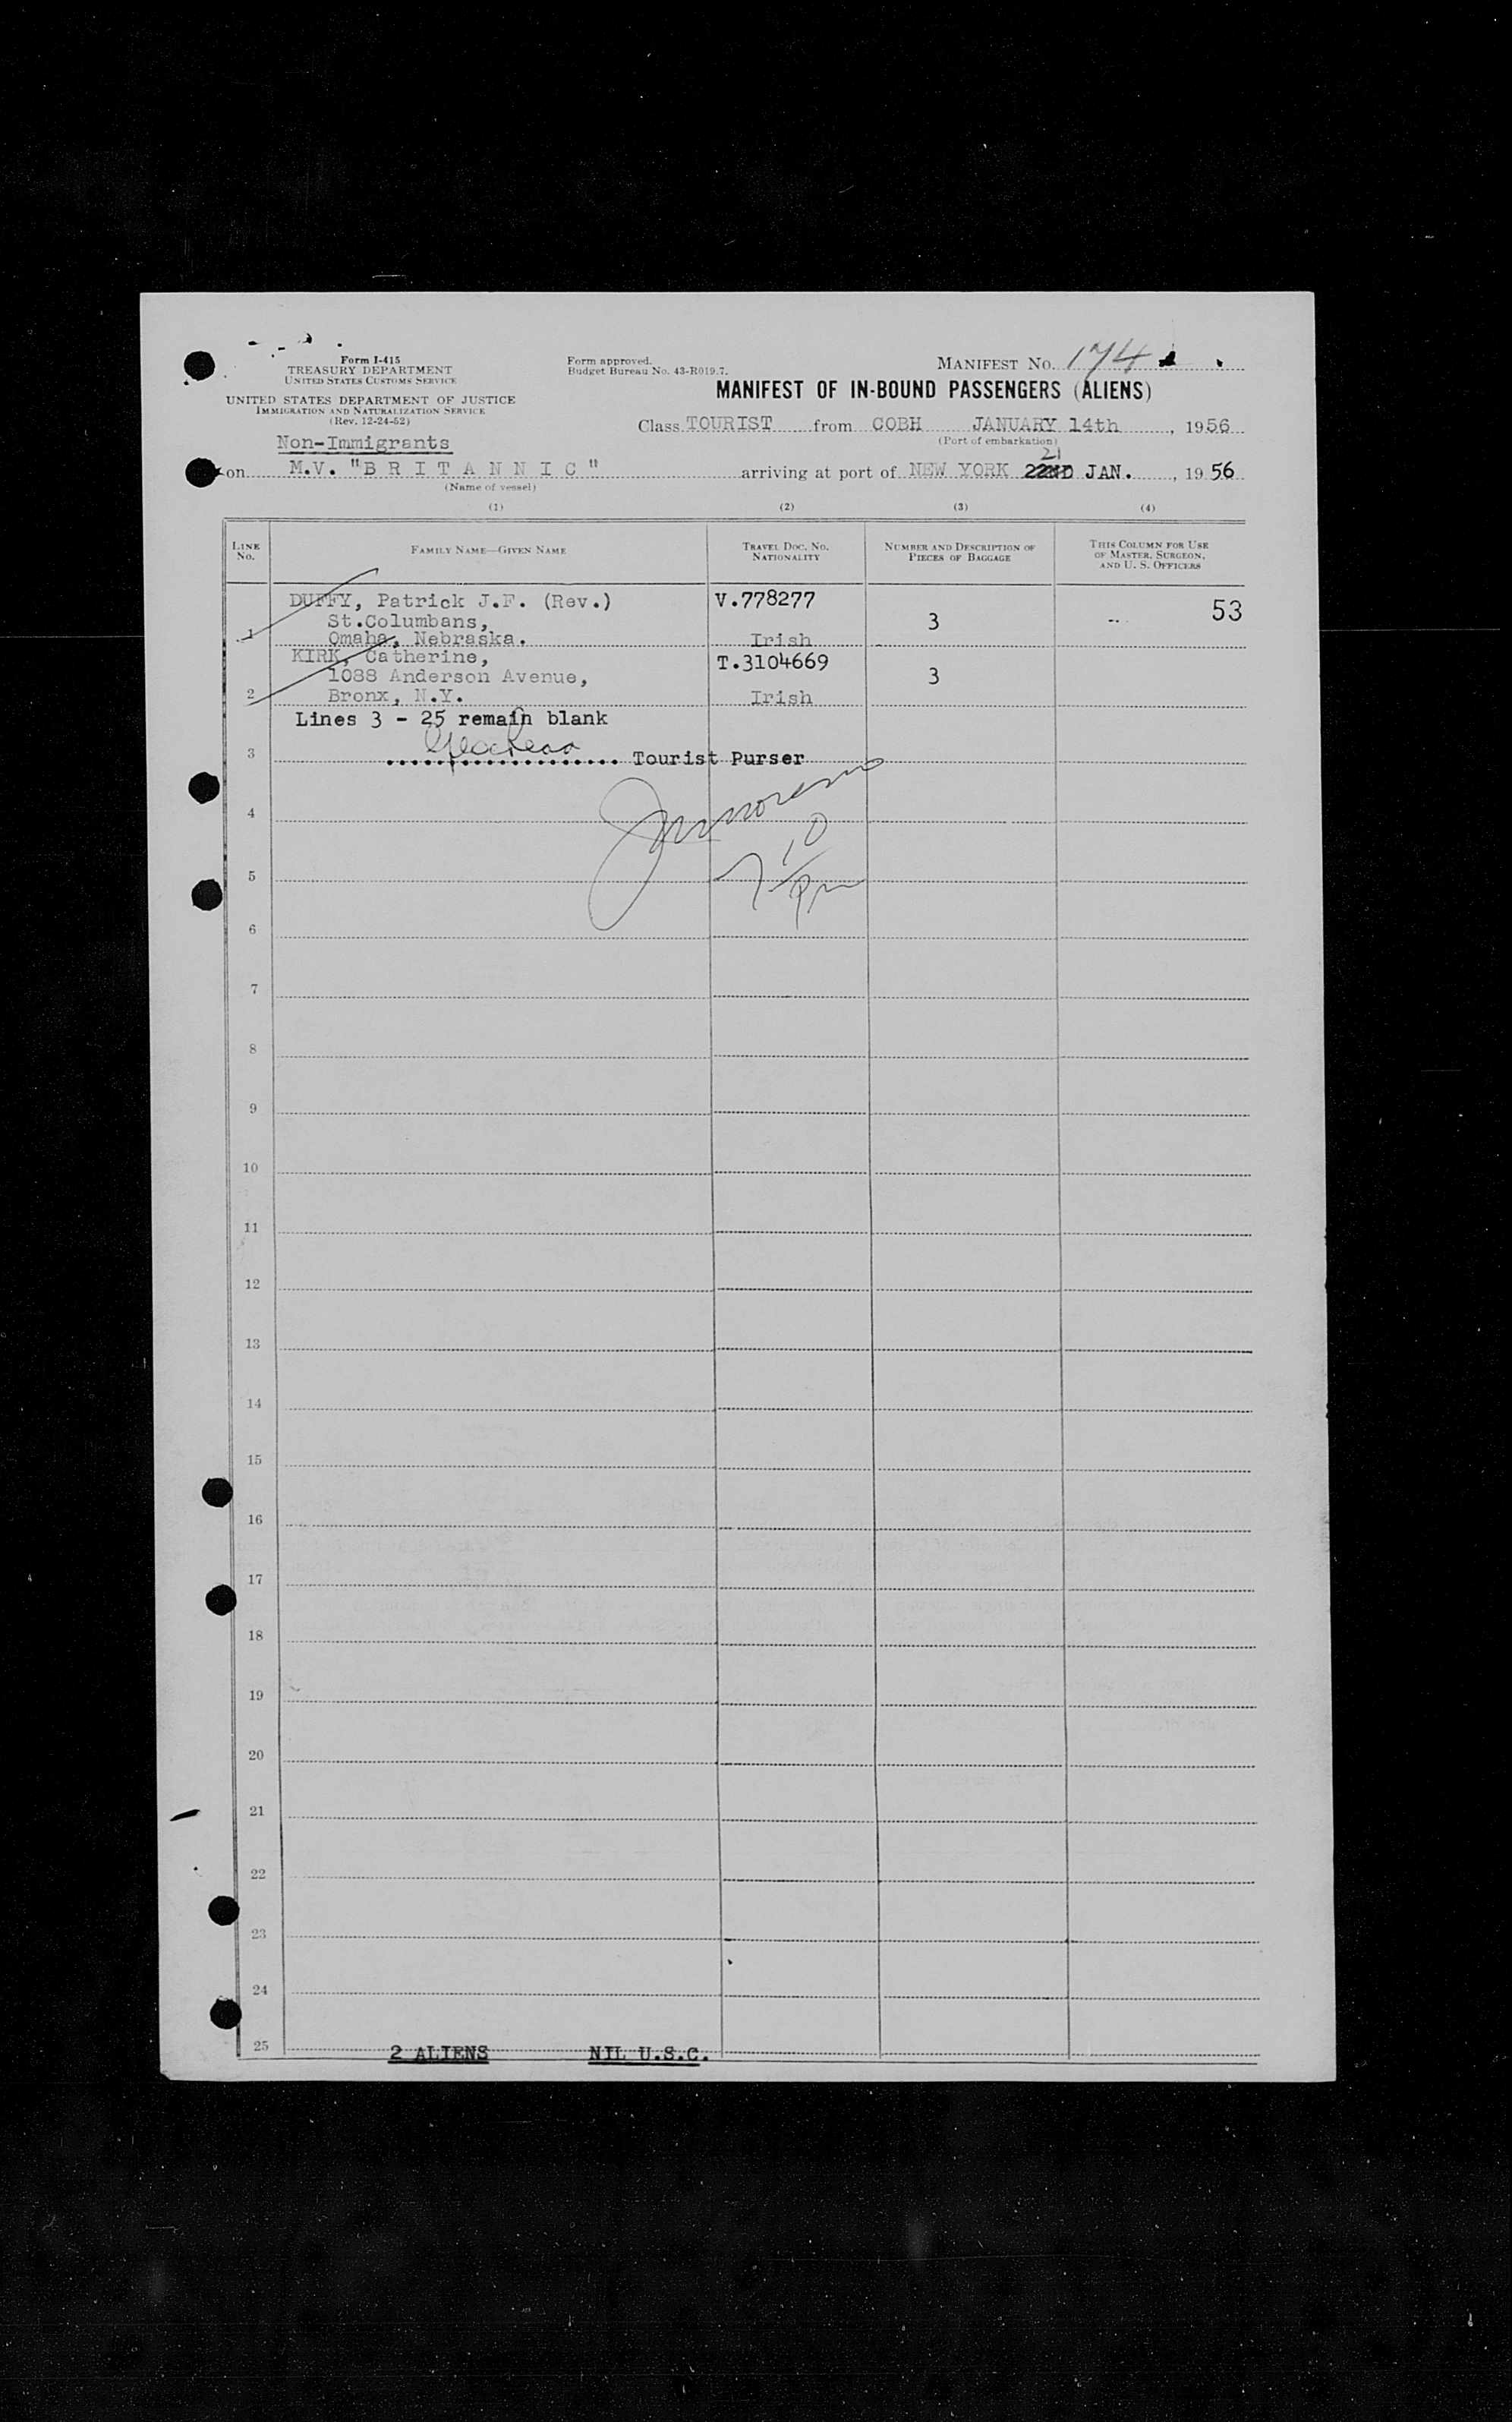 Form I-415
TREASURY DEPARTMENT
UNITED STATES CUSTOMS SERVICE
UNITED STATES DEPARTMENT OF JUSTICE
IMMIGRATION AND NATURALIZATION SERVICE
(Rev. 12-24-52)
Form approved.
Budget Bureau No. 43-R019.7.
MANIFEST No. 174
MANIFEST OF IN-BOUND PASSENGERS (ALIENS)
Class TOURIST from COBH JANUARY 14th, 1956
(Port of embarkation)
Non-Immigrants
21
on M.V. "B R I T A N N I C" arriving at port of NEW YORK 22ND JAN., 19 56
(Name of vessel)
(1) (2) (3) (4)
LINE No. FAMILY NAME—GIVEN NAME TRAVEL DOC. NO. NATIONALITY NUMBER AND DESCRIPTION OF PIECES OF BAGGAGE THIS COLUMN FOR USE OF MASTER, SURGEON, AND U. S. OFFICERS
DUFFY, Patrick J.F. (Rev.) V.778277 53
St.Columbans, 3
1 Omaha, Nebraska. Irish
KIRK, Catherine, T.3104669
1088 Anderson Avenue, 3
2 Bronx, N.Y. Irish
Lines 3 - 25 remain blank
3 Tourist Purser
4
7 10
5 pm
6
7
8
9
10
11
12
13
14
15
16
17
18
19
20
21
22
23
24
25 2 ALIENS NIL U.S.C.